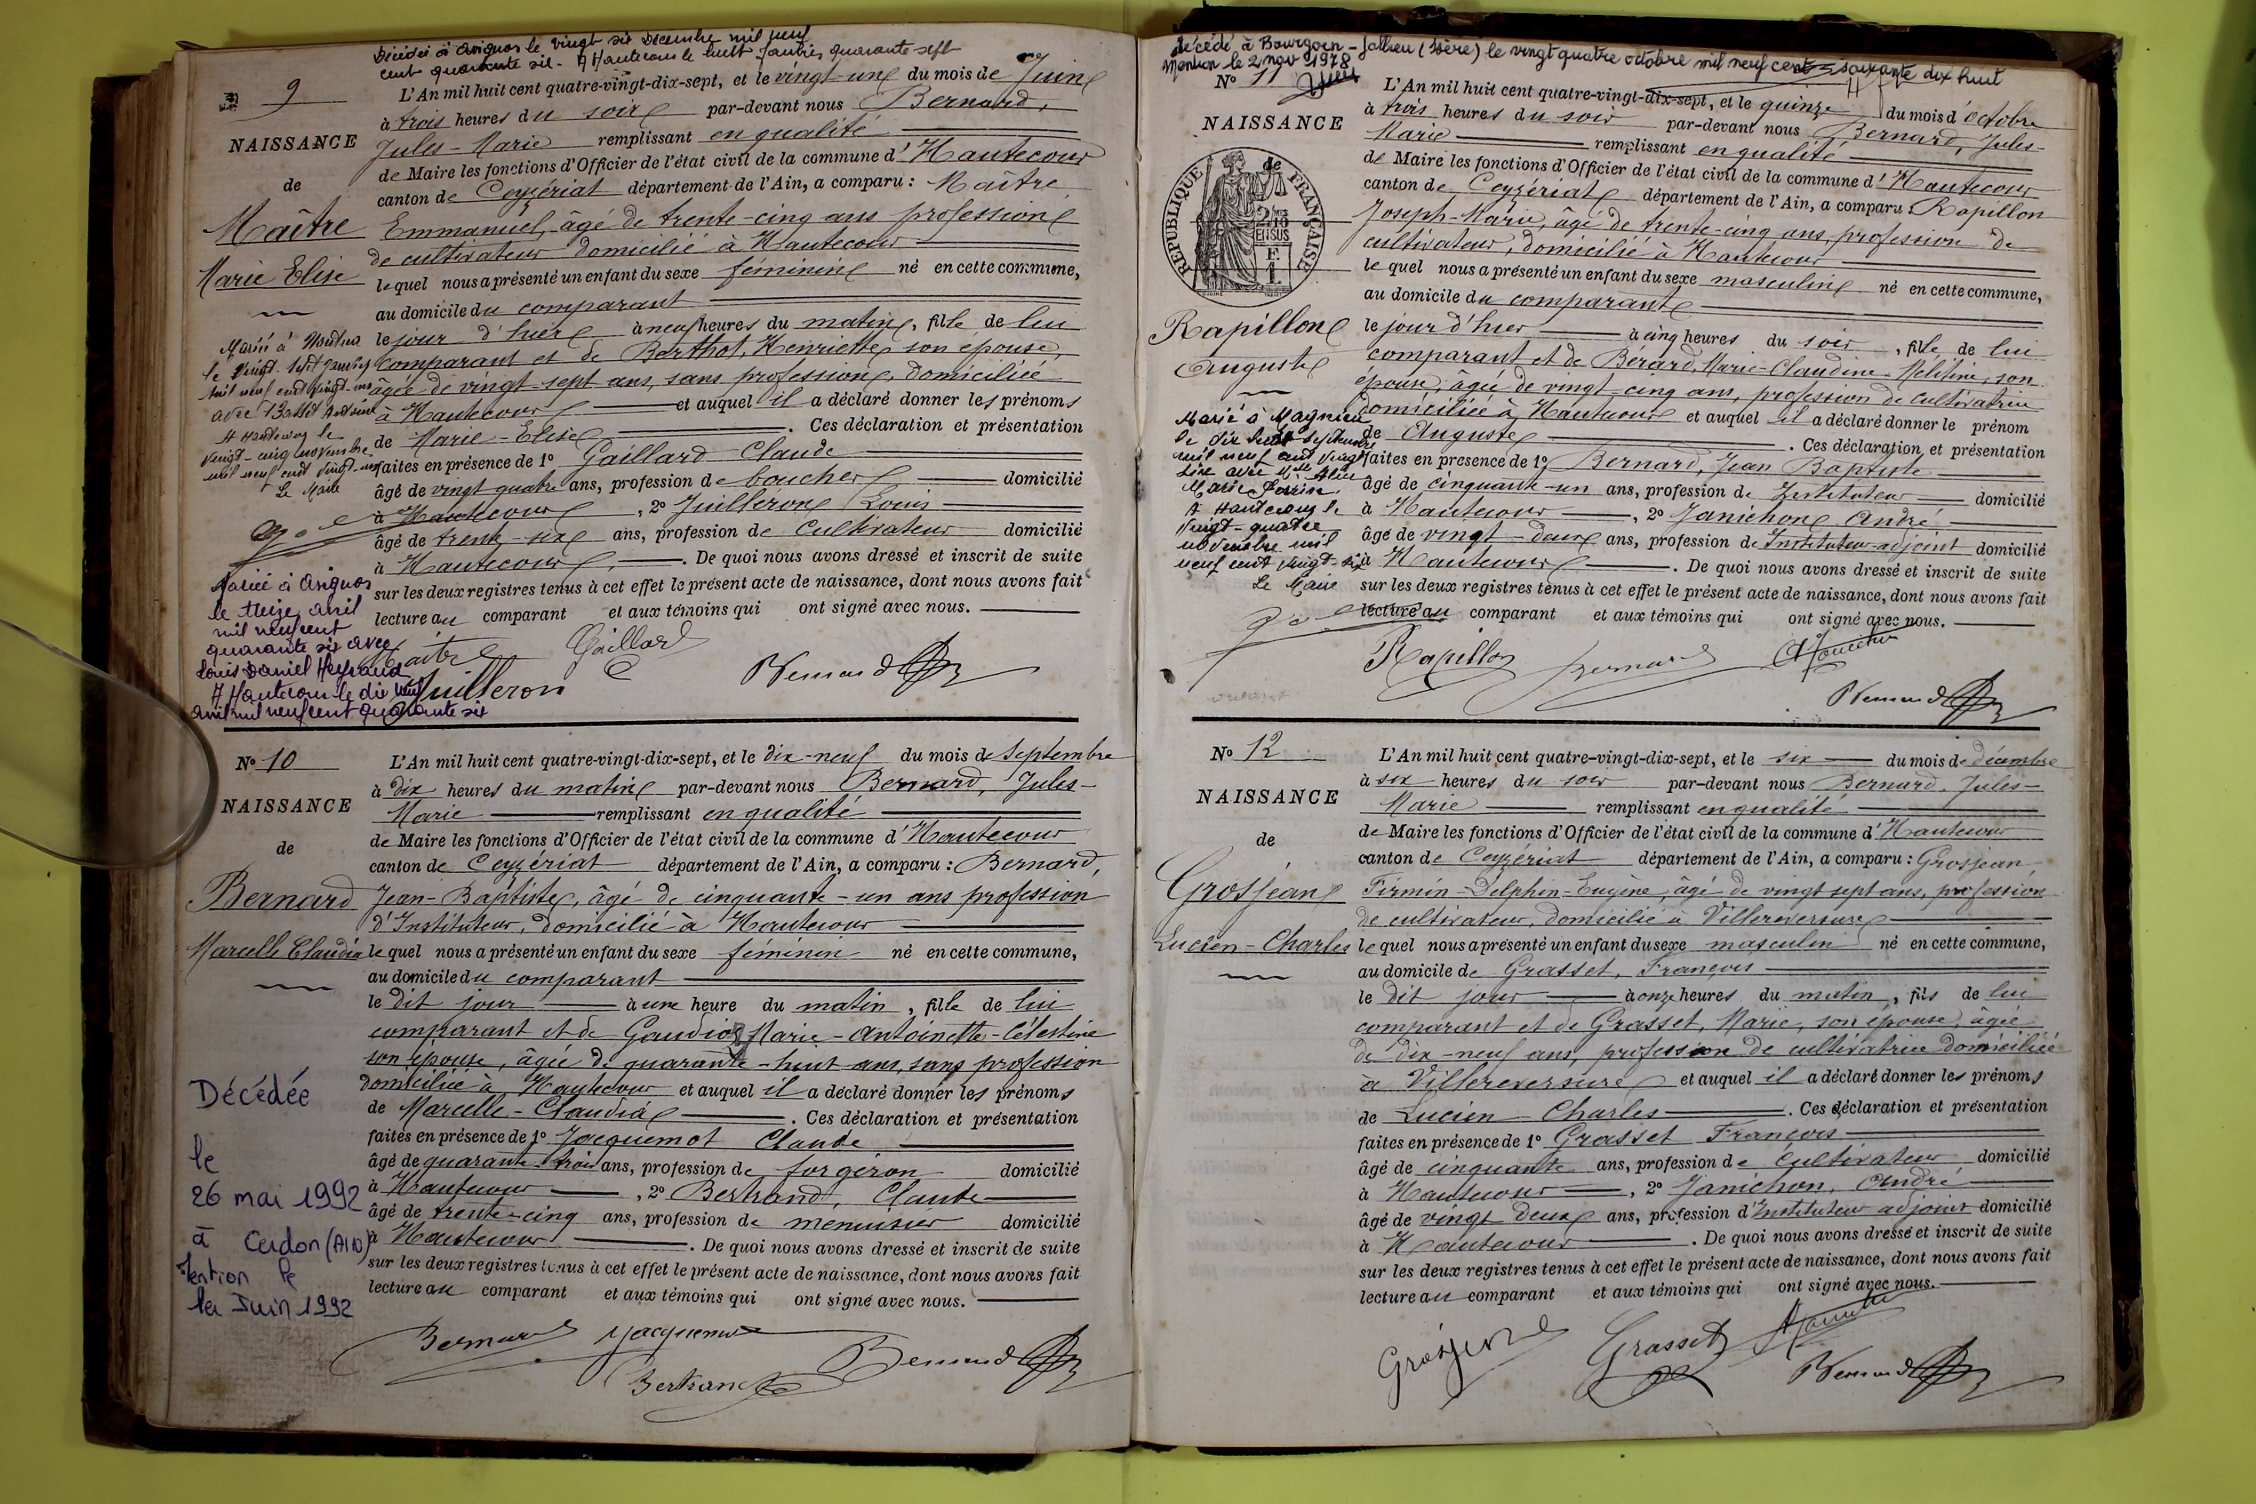 Décédée à Avignon le vingt six Décembre mil neuf
cent quarante six - A Hautecour le huit Janvier quarante sept
9
L'An mil huit cent quatre-vingt-dix-sept, et le vingt-un du mois de Juin
à trois heures du soir par-devant nous Bernard,
Jules-Marie remplissant en qualité
NAISSANCE
de Maire les fonctions d'Officier de l'état civil de la commune d'Hautecour
de
canton de Ceyzériat département de l'Ain, a comparu : Maître
Maître
Emmanuel, âgé de trente-cinq ans profession
de cultivateur domicilié à Hautecour
Marie Elise
lequel nous a présenté un enfant du sexe féminin né en cette commune,
au domicile du comparant
le jour d'hier à neuf heures du matin, fille de lui
comparant et de Berthot, Henriette son épouse,
âgée de vingt-sept ans, sans profession, domiciliée
à Hautecour et auquel il a déclaré donner les prénoms
de Marie-Elise . Ces déclaration et présentation
faites en présence de 1° Gaillard Claude
âgé de vingt quatre ans, profession de boucher domicilié
à Hautecour , 2° Juilleron Louis
âgé de trente-six ans, profession de cultivateur domicilié
à Hautecour . De quoi nous avons dressé et inscrit de suite
sur les deux registres tenus à cet effet le présent acte de naissance, dont nous avons fait
lecture au comparant et aux témoins qui ont signé avec nous.
Marié à
le vingt-sept Janvier
mil neuf cent vingt-un
avec
A Hautecour le
vingt-cinq novembre
mil neuf cent vingt-un
Le Maire
Mariée à Avignon
le treize avril
mil neuf cent
quarante six avec
Louis Daniel Heyraud
A Hautecour le dix neuf
avril mil neuf cent quarante six
Maitre Gaillard
Juilleron Bernard
N° 10
L'An mil huit cent quatre-vingt-dix-sept, et le dix-neuf du mois de Septembre
à dix heures du matin par-devant nous Bernard, Jules-
NAISSANCE
Marie remplissant en qualité
de Maire les fonctions d'Officier de l'état civil de la commune d'Hautecour
de
canton de Ceyzériat département de l'Ain, a comparu : Bernard,
Bernard
Jean-Baptiste, âgé de cinquante-un ans profession
d'Instituteur, domicilié à Hautecour
Marcelle Claudia
lequel nous a présenté un enfant du sexe féminin né en cette commune,
au domicile du comparant
le dit jour à une heure du matin, fille de lui
comparant et de Marie-Antoinette-Célestine
son épouse, âgée de quarante-huit ans, sans profession
domiciliée à Hautecour et auquel il a déclaré donner les prénoms
de Marcelle-Claudia . Ces déclaration et présentation
faites en présence de 1° Jacquemot Claude
âgé de quarante-trois ans, profession de forgeron domicilié
à Hautecour , 2° Bertrand, Claude
âgé de trente-cinq ans, profession de menuisier domicilié
à Hautecour . De quoi nous avons dressé et inscrit de suite
sur les deux registres tenus à cet effet le présent acte de naissance, dont nous avons fait
lecture au comparant et aux témoins qui ont signé avec nous.
Décédée
le
26 mai 1992
à Cerdon (AIN)
Mention le
1er Juin 1992
Bernard Jacquemot
Bertrand Bernard
Décédé à Bourgoin-Jallieu (Isère) le vingt quatre octobre mil neuf cent soixante dix huit
Mention le 2 nov 1978
N° 11
L'An mil huit cent quatre-vingt-dix-sept, et le quinze du mois d'octobre
à trois heures du soir par-devant nous Bernard, Jules-
NAISSANCE
Marie remplissant en qualité
de Maire les fonctions d'Officier de l'état civil de la commune d'Hautecour
de
canton de Ceyzériat département de l'Ain, a comparu Rapillon
REPUBLIQUE FRANÇAISE
2/10 EN SUS
Joseph-Marie, âgé de trente-cinq ans, profession de
cultivateur, domicilié à Hautecour
lequel nous a présenté un enfant du sexe masculin né en cette commune,
au domicile du comparant
Rapillon
le jour d'hier à cinq heures du soir, fils de lui
Auguste
comparant et de Bérard, Marie-Claudine-Mélitine, son
épouse, âgée de vingt-cinq ans, profession de cultivatrice
domiciliée à Hautecour et auquel il a déclaré donner le prénom
de Auguste . Ces déclaration et présentation
faites en présence de 1° Bernard, Jean Baptiste
âgé de cinquante-un ans, profession de Instituteur domicilié
à Hautecour , 2° Janichon, André
âgé de vingt-deux ans, profession de Instituteur-adjoint domicilié
à Hautecour . De quoi nous avons dressé et inscrit de suite
sur les deux registres tenus à cet effet le présent acte de naissance, dont nous avons fait
lecture au comparant et aux témoins qui ont signé avec nous.
Marié à Magnieu
le dix huit Septembre
mil neuf cent vingt
six avec Mlle Alice
Marie Perrin
A Hautecour le
vingt-quatre
novembre mil
neuf cent vingt-six
Le Maire
Rapillon Bernard A Janichon
Bernard
N° 12
L'An mil huit cent quatre-vingt-dix-sept, et le six du mois de décembre
à six heures du soir par-devant nous Bernard, Jules-
NAISSANCE
Marie remplissant en qualité
de Maire les fonctions d'Officier de l'état civil de la commune d'Hautecour
de
canton de Ceyzériat département de l'Ain, a comparu : Grosjean
Grosjean
Firmin-Delphin-Eugène, âgé de vingt sept ans, profession
de cultivateur, domicilié à Villereversure
Lucien-Charles
lequel nous a présenté un enfant du sexe masculin né en cette commune,
au domicile de Grasset, François
le dit jour à onze heures du matin, fils de lui
comparant et de Grasset, Marie, son épouse, âgée
de dix-neuf ans, profession de cultivatrice domiciliée
à Villereversure et auquel il a déclaré donner les prénoms
de Lucien-Charles . Ces déclaration et présentation
faites en présence de 1° Grasset François
âgé de cinquante ans, profession de cultivateur domicilié
à Hautecour , 2° Janichon, André
âgé de vingt deux ans, profession d'Instituteur adjoint domicilié
à Hautecour . De quoi nous avons dressé et inscrit de suite
sur les deux registres tenus à cet effet le présent acte de naissance, dont nous avons fait
lecture au comparant et aux témoins qui ont signé avec nous.
Grosjean Grasset A Janichon
Bernard